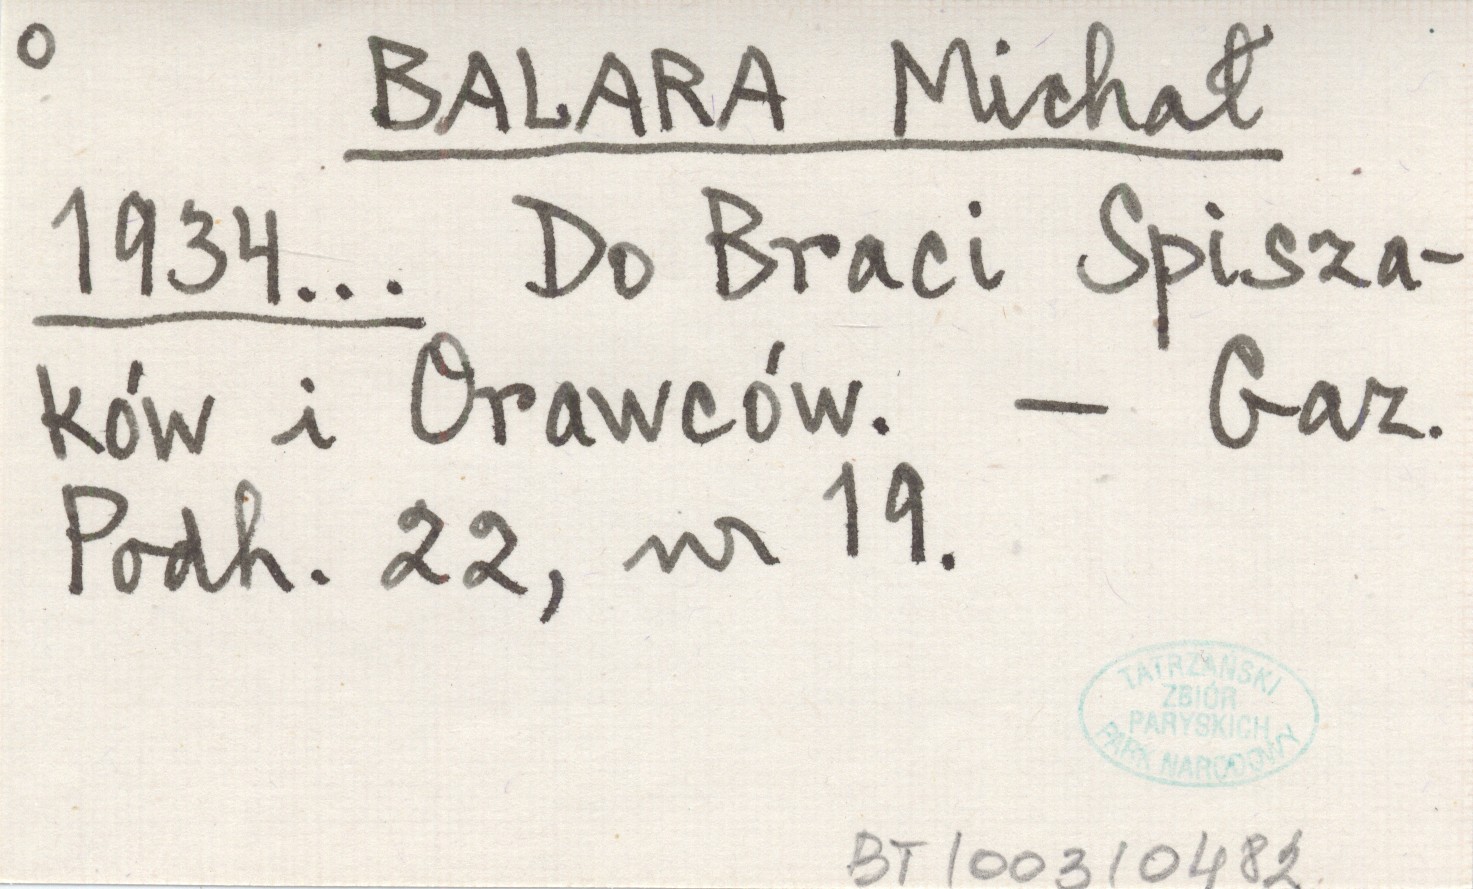 o
BALARA Michał
1934... Do Braci Spisza-
ków i Orawców. — Gaz.
Podh. 22, nr 19.
TATRZAŃSKI
ZBIÓR
PARYSKICH
PARK NARODOWY
BT/003/0482